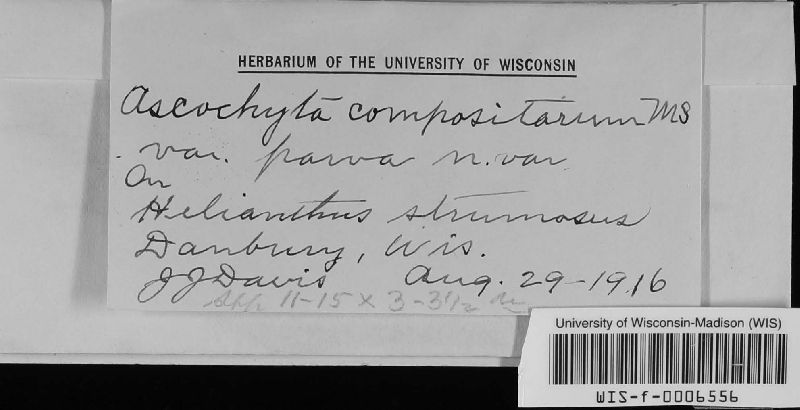 HERBARIUM OF THE UNIVERSITY OF WISCONSIN
Ascochyta compositarum MS
var. parva n. var.
On
Helianthus strumosus
Danbury, Wis.
J J Davis Aug. 29-1916
spp 11-15 x 3-3½
University of Wisconsin-Madison (WIS)
WIS-f-0006556